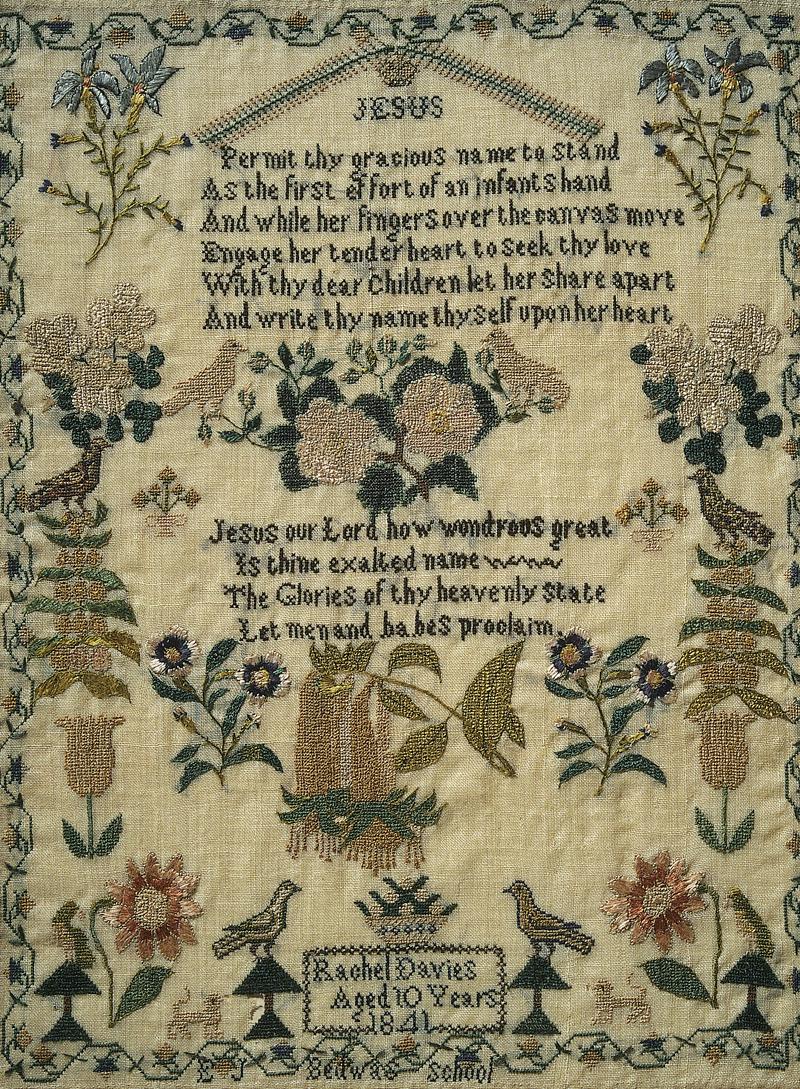 JESUS
Permit thy gracious name to stand
As the first effort of an infants hand
And while her fingers over the canvas move
Engage her tender heart to seek thy love
With thy dear Children let her share apart
And write thy name thyself upon her heart
Jesus our Lord how wondrous great
Is thine exalted name
The Glories of thy heavenly state
Let men and babes proclaim.
Rachel Davies
Aged 10 Years
1841
E J Bedwas School